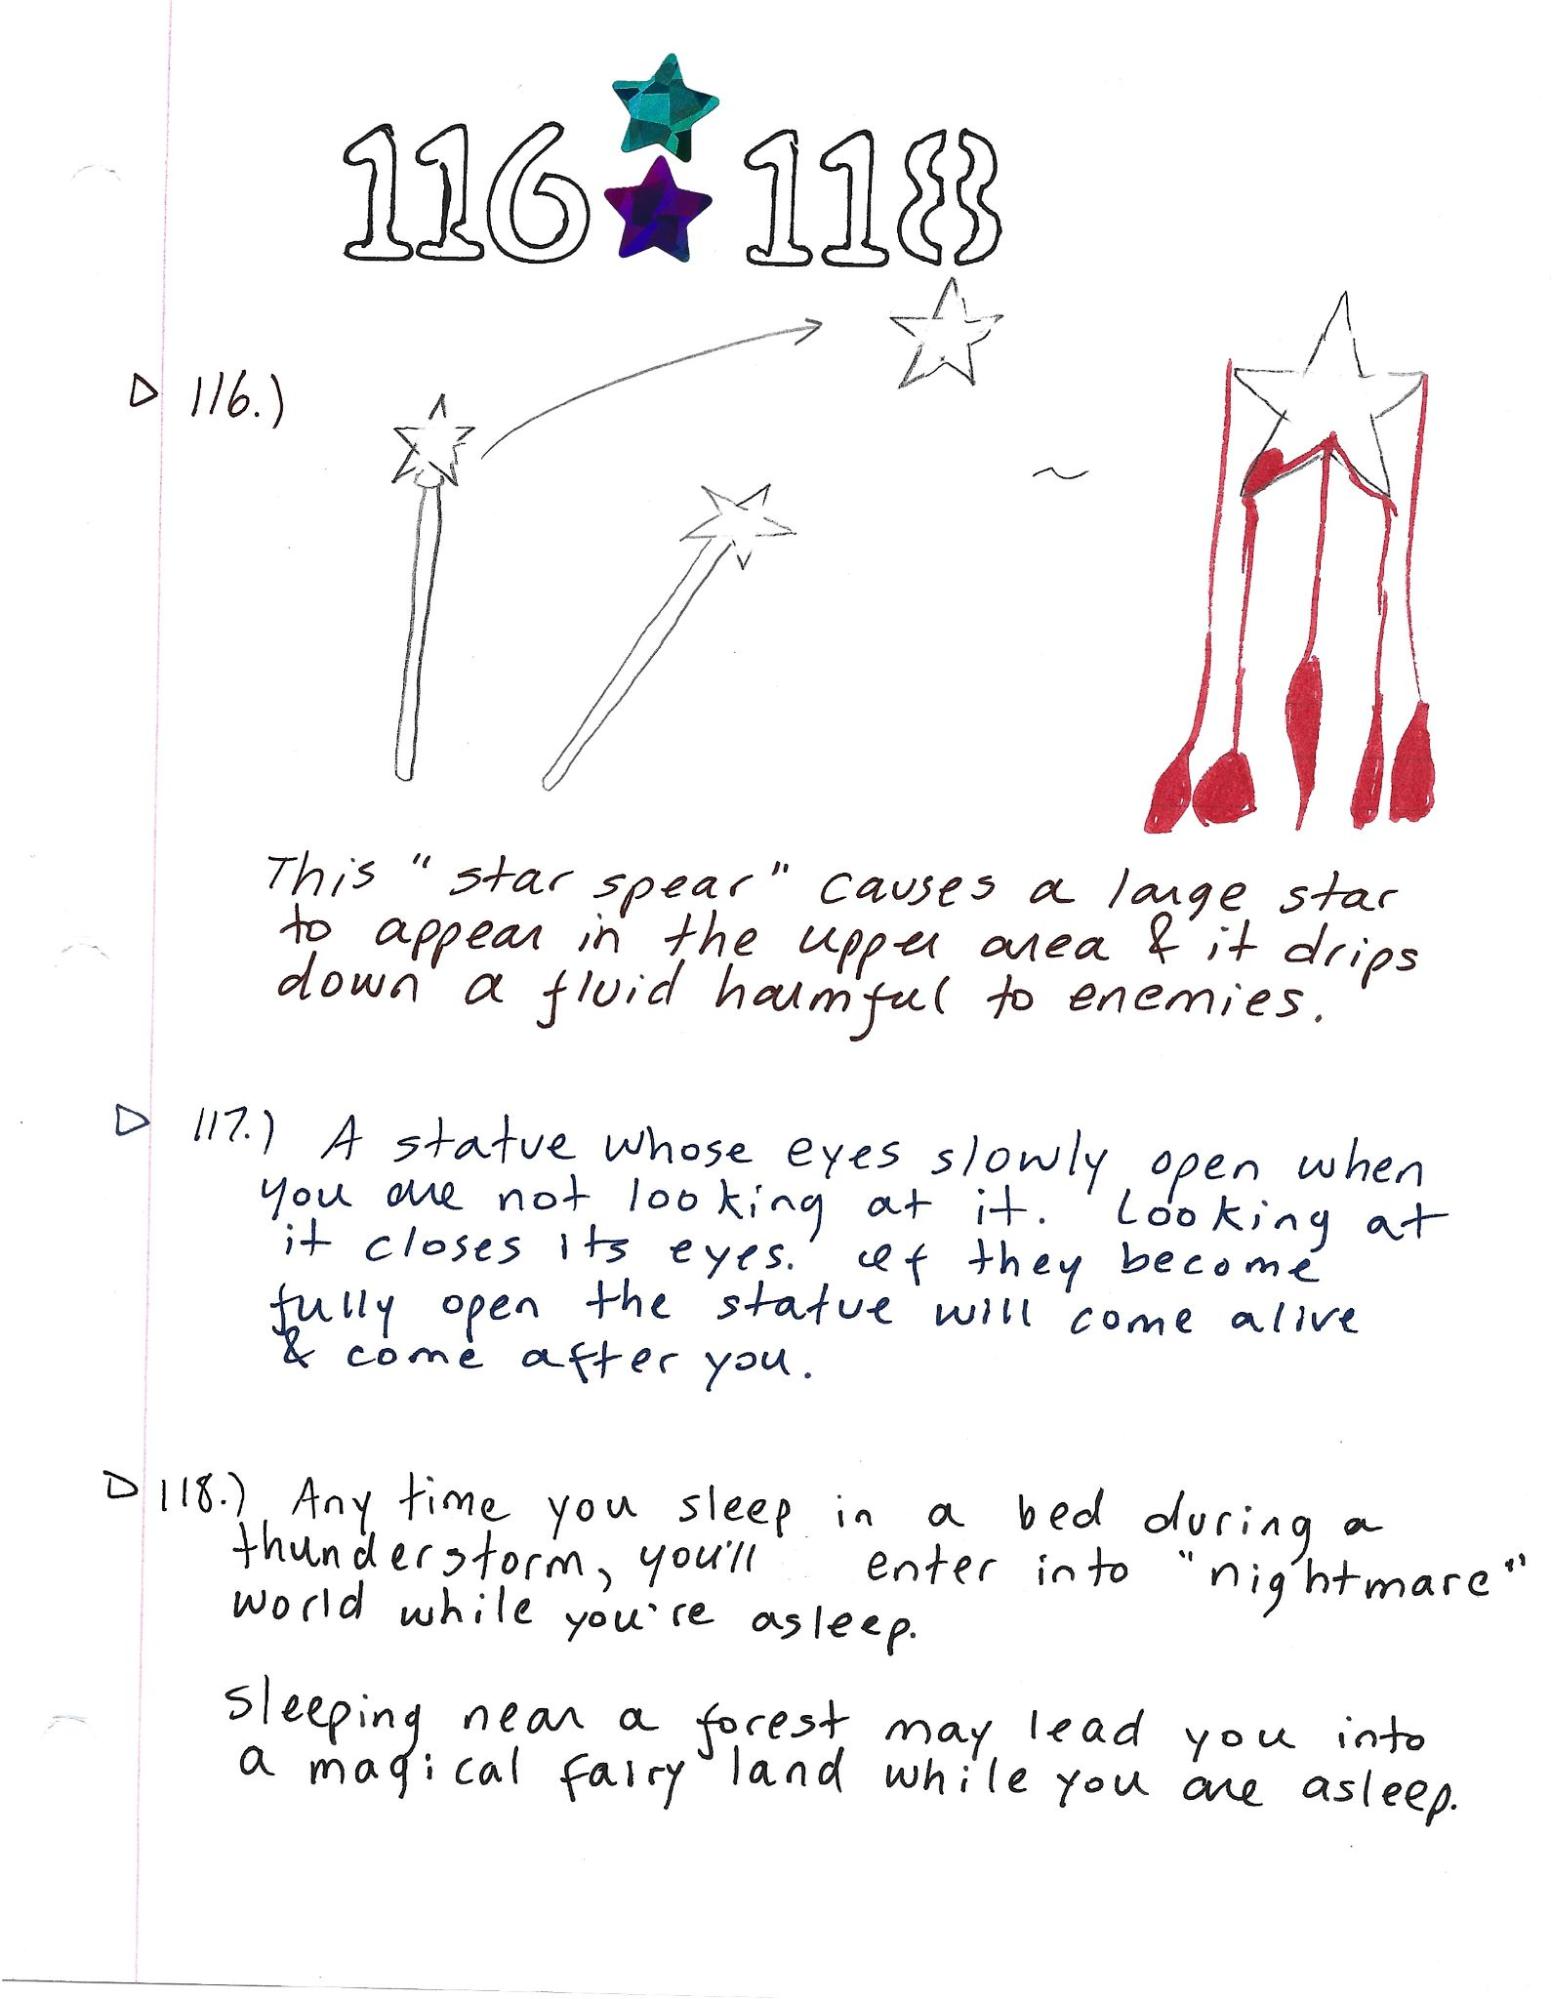 116 118
116.)
~
This "star spear" causes a large star
to appear in the upper area & it drips
down a fluid harmful to enemies.
117.) A statue whose eyes slowly open when
you are not looking at it. Looking at
it closes its eyes. If they become
fully open the statue will come alive
& come after you.
118.) Any time you sleep in a bed during a
thunderstorm, you'll enter into "nightmare"
world while you're asleep.
Sleeping near a forest may lead you into
a magical fairy land while you are asleep.